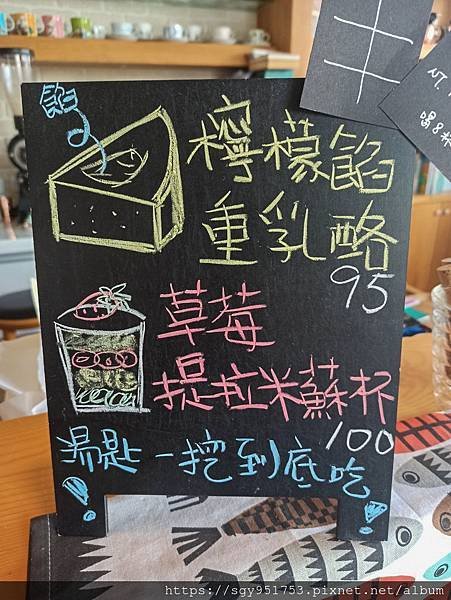 餡
檸檬餡
重乳酪
95
草莓
提拉米蘇杯
100
湯匙一挖到底吃
!
!
NT.
喝8杯
https://sgy951753.pixnet.net/album